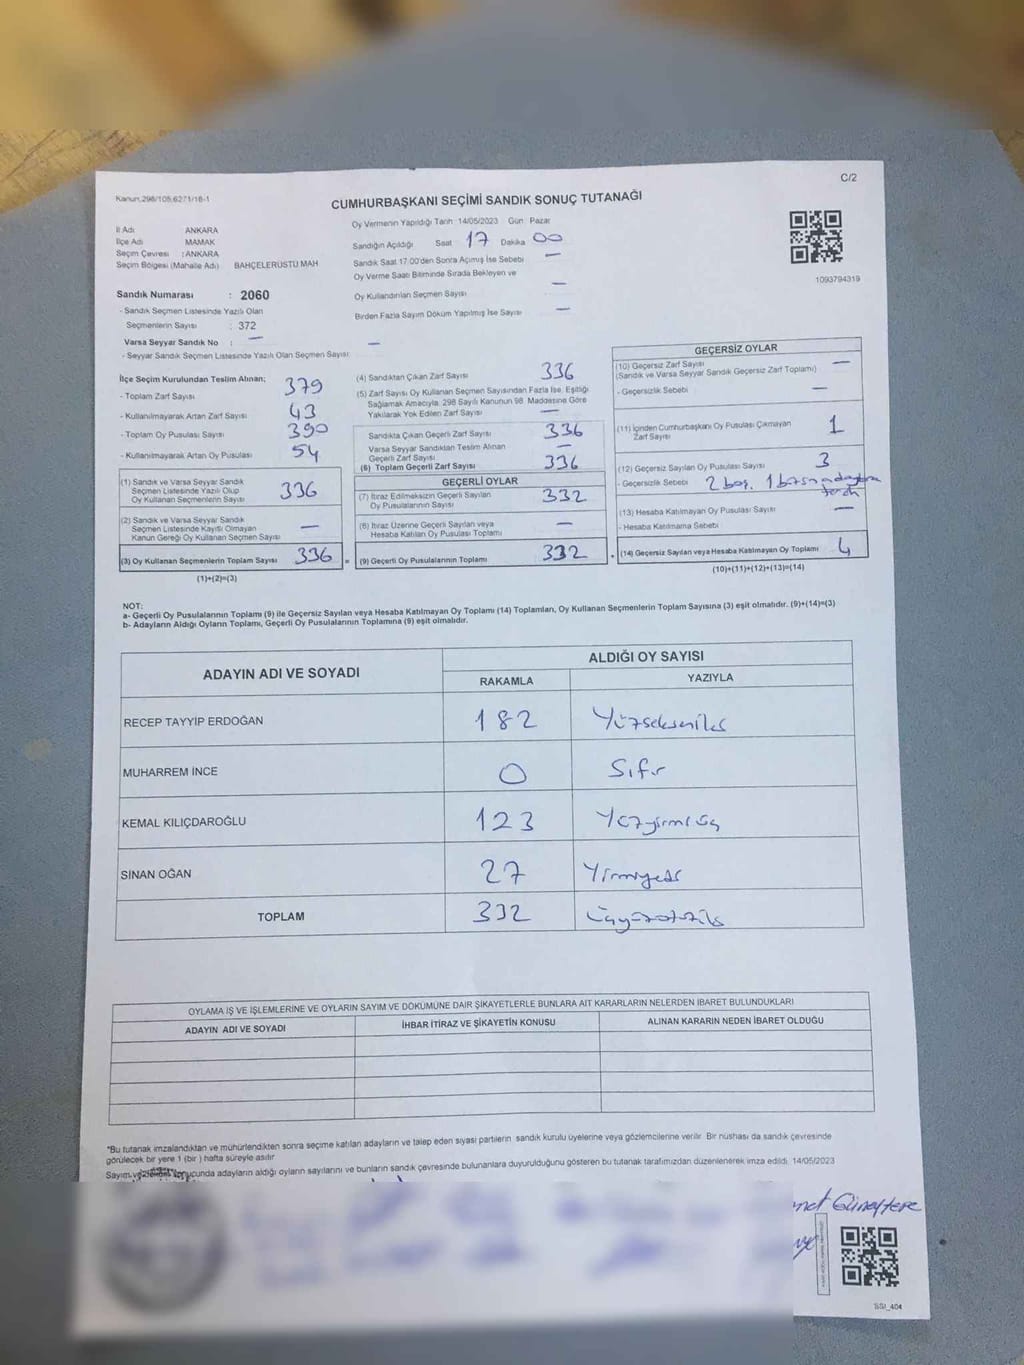 C/2
Kanun:298/105,6271/18-1
CUMHURBAŞKANI SEÇİMİ SANDIK SONUÇ TUTANAĞI
İl Adı : ANKARA
İlçe Adı : MAMAK
Seçim Çevresi : ANKARA
Seçim Bölgesi (Mahalle Adı) BAHÇELERÜSTÜ MAH.
Sandık Numarası : 2060
- Sandık Seçmen Listesinde Yazılı Olan
Seçmenlerin Sayısı : 372
Varsa Seyyar Sandık No : —
- Seyyar Sandık Seçmen Listesinde Yazılı Olan Seçmen Sayısı: —
Oy Vermenin Yapıldığı Tarih 14/05/2023 Gün Pazar
Sandığın Açıldığı Saat 17 Dakika 00
Sandık Saat 17.00'den Sonra Açımış İse Sebebi —
Oy Verme Saati Bitiminde Sırada Bekleyen ve
Oy Kullandırılan Seçmen Sayısı —
Birden Fazla Sayım Döküm Yapılmış İse Sayısı —
1093794319
İlçe Seçim Kurulundan Teslim Alınan;
- Toplam Zarf Sayısı 379
- Kullanılmayarak Artan Zarf Sayısı 43
- Toplam Oy Pusulası Sayısı 390
- Kullanılmayarak Artan Oy Pusulası 54
(1) Sandık ve Varsa Seyyar Sandık
Seçmen Listesinde Yazılı Olup
Oy Kullanan Seçmenlerin Sayısı 336
(2) Sandık ve Varsa Seyyar Sandık
Seçmen Listesinde Kayıtlı Olmayan
Kanun Gereği Oy Kullanan Seçmen Sayısı —
(3) Oy Kullanan Seçmenlerin Toplam Sayısı 336 =
(1)+(2)=(3)
(4) Sandıktan Çıkan Zarf Sayısı 336
(5) Zarf Sayısı Oy Kullanan Seçmen Sayısından Fazla İse, Eşitliği
Sağlamak Amacıyla, 298 Sayılı Kanunun 98. Maddesine Göre
Yakılarak Yok Edilen Zarf Sayısı —
Sandıkta Çıkan Geçerli Zarf Sayısı 336
Varsa Seyyar Sandıktan Teslim Alınan
Geçerli Zarf Sayısı —
(6) Toplam Geçerli Zarf Sayısı 336
GEÇERLİ OYLAR
(7) İtiraz Edilmeksizin Geçerli Sayılan
Oy Pusulalarının Sayısı 332
(8) İtiraz Üzerine Geçerli Sayılan veya
Hesaba Katılan Oy Pusulası Toplamı —
(9) Geçerli Oy Pusulalarının Toplamı 332 +
GEÇERSİZ OYLAR
(10) Geçersiz Zarf Sayısı —
(Sandık ve Varsa Seyyar Sandık Geçersiz Zarf Toplamı)
- Geçersizlik Sebebi —
(11) İçinden Cumhurbaşkanı Oy Pusulası Çıkmayan
Zarf Sayısı 1
(12) Geçersiz Sayılan Oy Pusulası Sayısı 3
- Geçersizlik Sebebi 2 boş,
(13) Hesaba Katılmayan Oy Pusulası Sayısı —
- Hesaba Katılmama Sebebi
(14) Geçersiz Sayılan veya Hesaba Katılmayan Oy Toplamı 4
(10)+(11)+(12)+(13)=(14)
NOT:
a- Geçerli Oy Pusulalarının Toplamı (9) ile Geçersiz Sayılan veya Hesaba Katılmayan Oy Toplamı (14) Toplamları, Oy Kullanan Seçmenlerin Toplam Sayısına (3) eşit olmalıdır. (9)+(14)=(3)
b- Adayların Aldığı Oyların Toplamı, Geçerli Oy Pusulalarının Toplamına (9) eşit olmalıdır.
ADAYIN ADI VE SOYADI ALDIĞI OY SAYISI
RAKAMLA YAZIYLA
RECEP TAYYİP ERDOĞAN 182 Yüzsekseniki
MUHARREM İNCE 0 Sıfır
KEMAL KILIÇDAROĞLU 123 Yüzyirmiüç
SINAN OĞAN 27 Yirmiyedi
TOPLAM 332 Üçyüzotuziki
OYLAMA İŞ VE İŞLEMLERİNE VE OYLARIN SAYIM VE DÖKÜMÜNE DAİR ŞİKAYETLERLE BUNLARA AİT KARARLARIN NELERDEN İBARET BULUNDUKLARI
ADAYIN ADI VE SOYADI İHBAR İTİRAZ VE ŞİKAYETİN KONUSU ALINAN KARARIN NEDEN İBARET OLDUĞU
*Bu tutanak imzalandıktan ve mühürlendikten sonra seçime katılan adayların ve talep eden siyasi partilerin sandık kurulu üyelerine veya gözlemcilerine verilir. Bir nüshası da sandık çevresinde
görülecek bir yere 1 (bir ) hafta süreyle asılır.
Sayım adayların aldığı oyların sayılarını ve bunların sandık çevresinde bulunanlara duyurulduğunu gösteren bu tutanak tarafımızdan düzenlenerek imza edildi. 14/05/2023
SSI_404